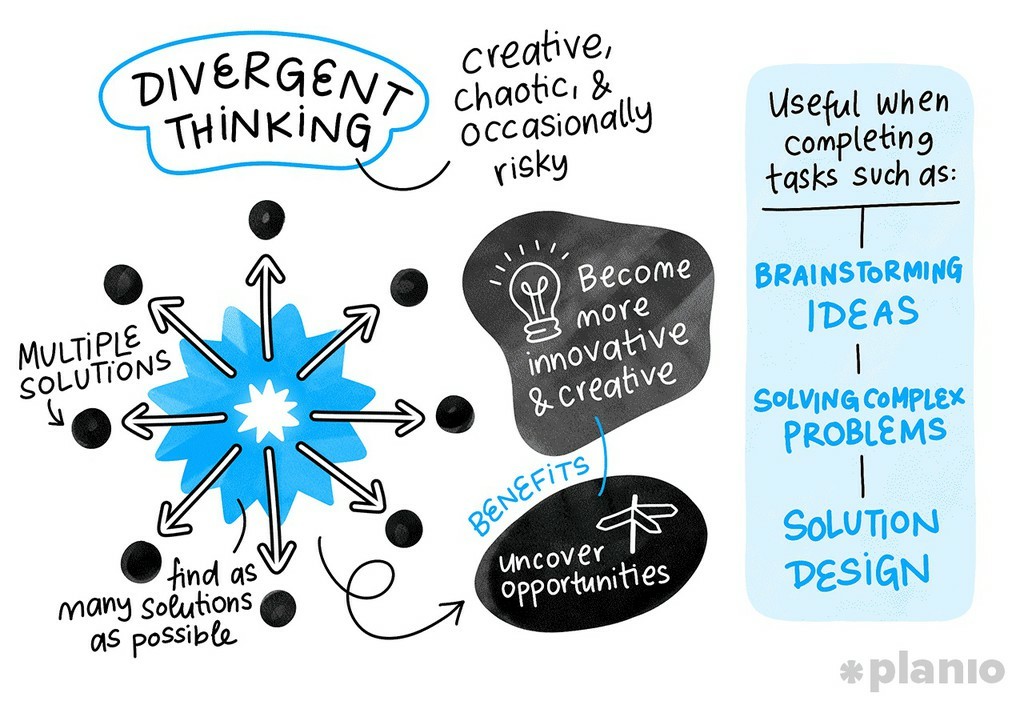 DIVERGENT
THINKING
creative,
chaotic, &
occasionally
risky
MULTIPLE
SOLUTIONS
find as
many solutions
as possible
Become
more
innovative
& creative
BENEFITS
uncover
opportunities
Useful when
completing
tasks such as:
BRAINSTORMING
IDEAS
SOLVING COMPLEX
PROBLEMS
SOLUTION
DESIGN
planio